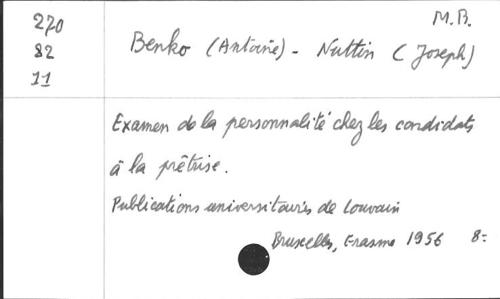 M.B.
270
82
11
Benko (Antoine) - Nuttin (Joseph)
Examen de la personnalité chez les candidats
à la prêtrise.
Publications universitaires de Louvain
Bruxelles, Erasme 1956 8=